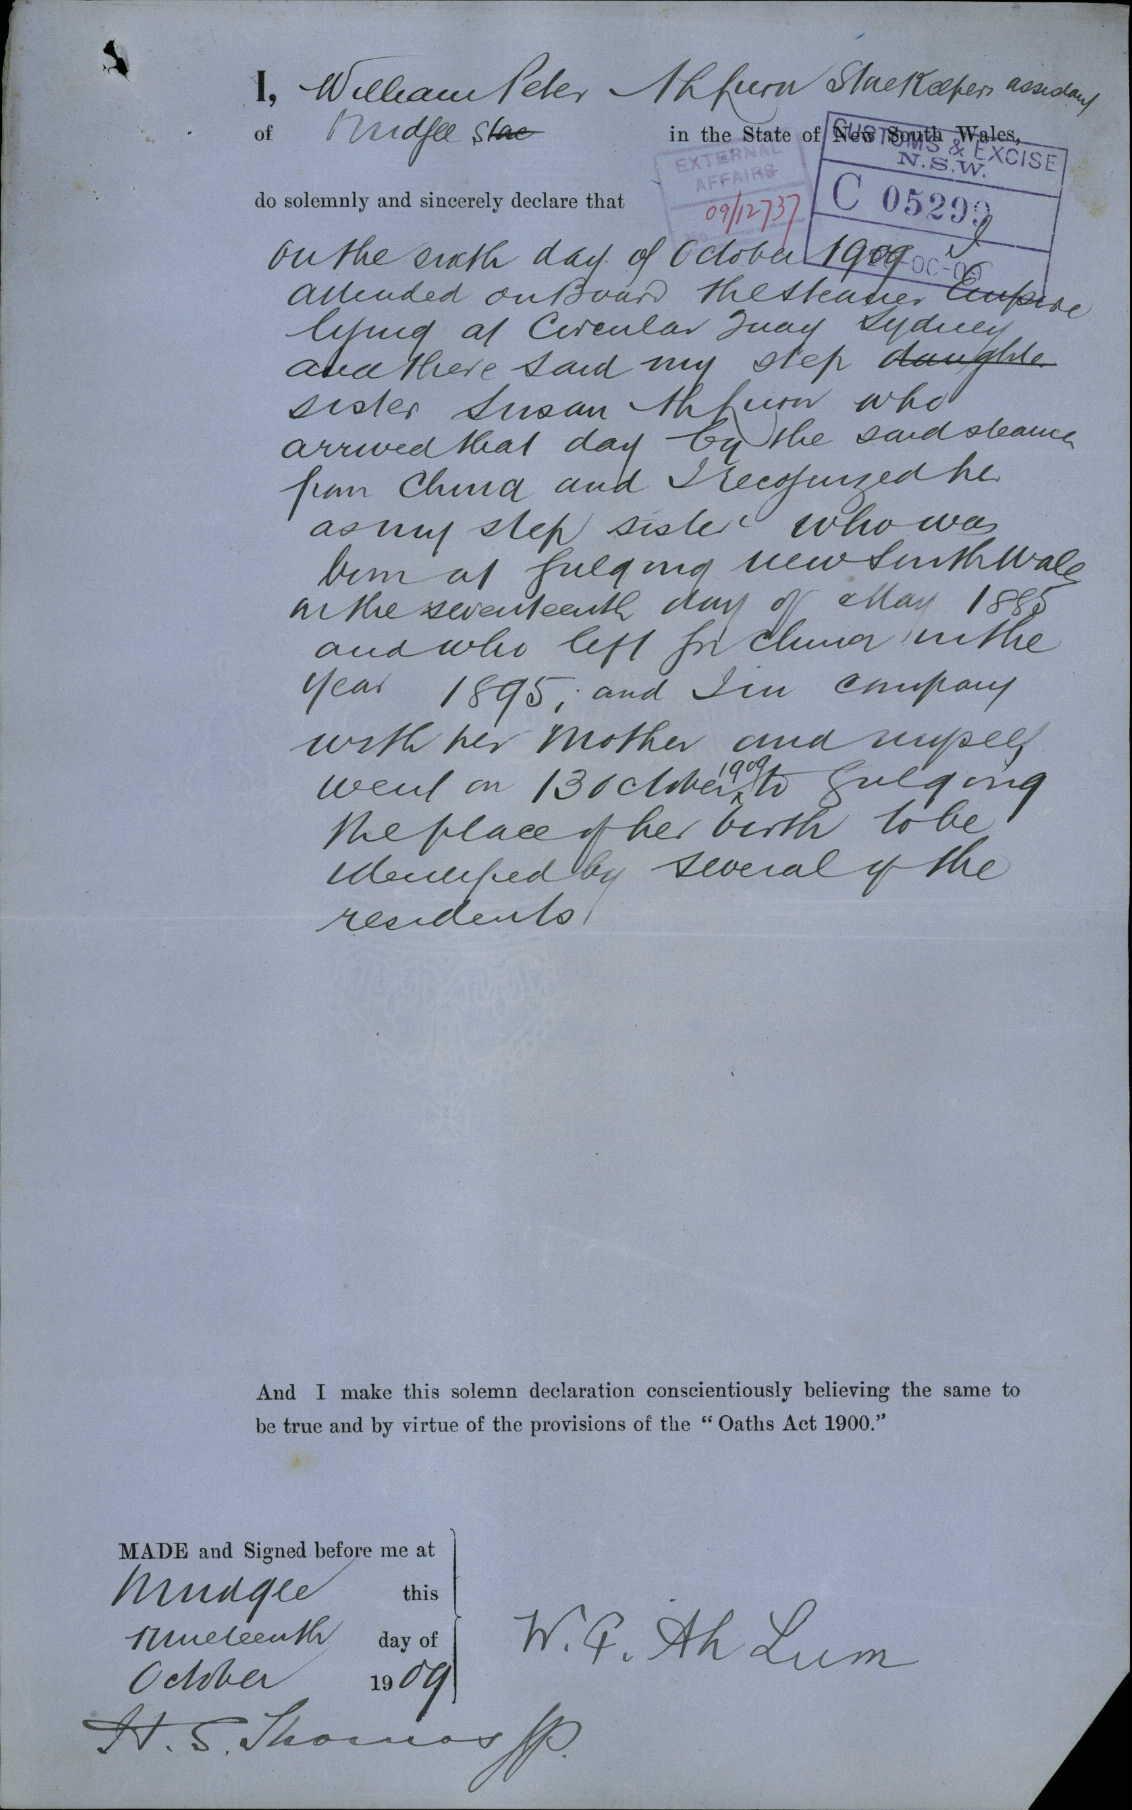 I, William Peter Ah Lum Storekeepers assistant
of Mudgee Stae in the State of New South Wales,
CUSTOMS & EXCISE
N.S.W.
C 05299
OC-09
EXTERNAL
AFFAIRS
09/12737
do solemnly and sincerely declare that
on the sixth day of October 1909 I
attended on Board the steamer Empire
lying at Circular Quay Sydney
and there said my step daughter
sister Susan Ah Lum who
arrived that day by the said steamer
from China and I recognized her
as my step sister who was
born at Gulgong New South Wales
on the seventeenth day of May 1885
and who left for China in the
year 1895, and I in company
with her Mother and myself
went on 13 October 1909 to Gulgong
the place of her birth to be
identified by several of the
residents
And I make this solemn declaration conscientiously believing the same to
be true and by virtue of the provisions of the “Oaths Act 1900.”
MADE and Signed before me at
Mudgee this
nineteenth day of
October 1909
W. P. Ah Lum
H. S. Thomas JP.